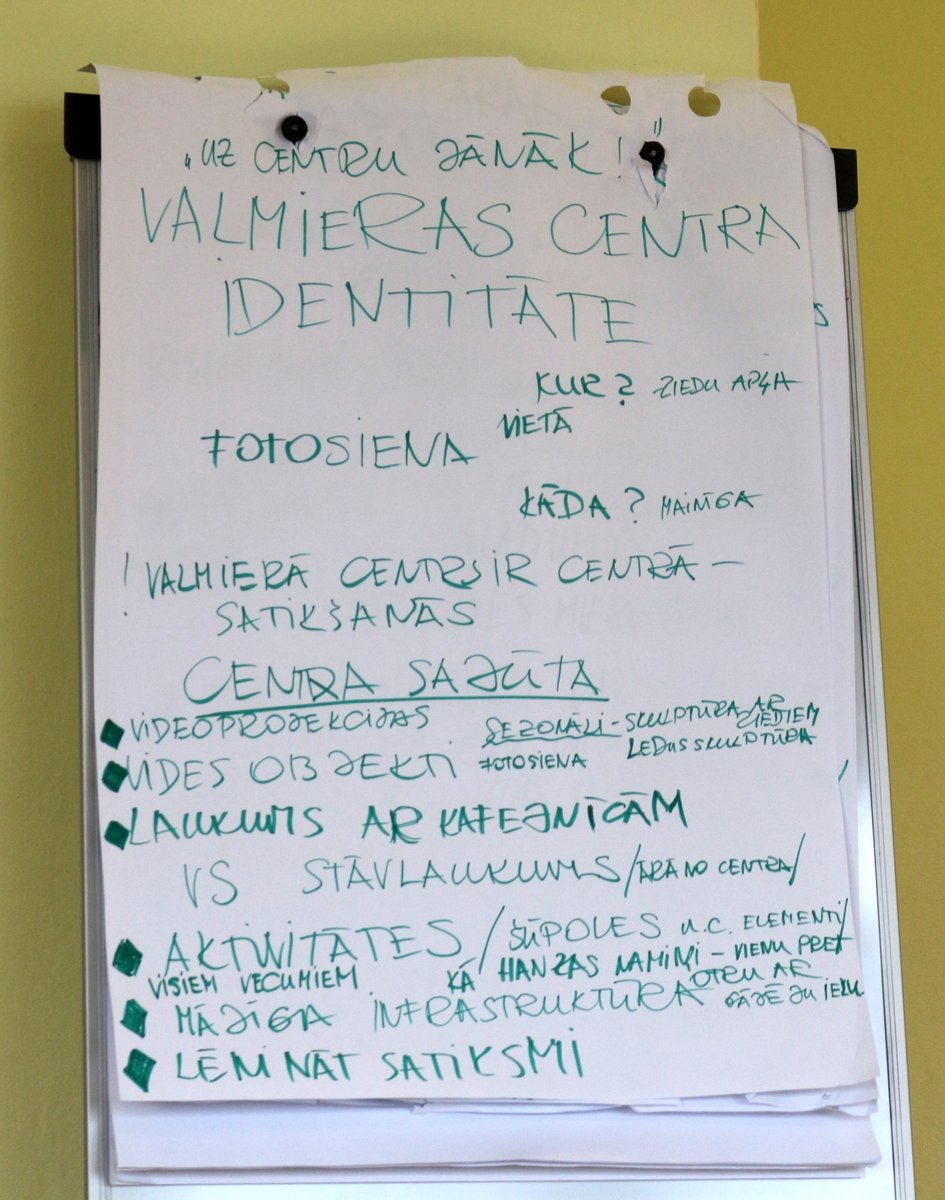 „UZ CENTRU JĀNĀK!"
VALMIERAS CENTRA
IDENTITĀTE
KUR? ZIEDU APĻA
VIETĀ
FOTOSIENA
KĀDA? MAINĪGA
! VALMIERĀ CENTRS IR CENTRĀ –
SATIKŠANĀS
CENTRA SAJŪTA
VIDEOPROJEKCIJAS
SEZONĀLI - SKULPTŪRA AR ZIEDIEM
LEDUS SKULPTŪRA
VIDES OBJEKTI FOTOSIENA
LAUKUMS AR KAFEJNĪCĀM
VS STĀVLAUKUMS /ĀRĀ NO CENTRA/
AKTIVITĀTES /ŠŪPOLES U.C. ELEMENTI/
VISIEM VECUMIEM KĀ HANZAS NAMIŅI – VIENU PRET
OTRU AR
MĀJĪGA INFRASTRUKTŪRA GĀJĒJU IELU
LĒNINĀT SATIKSMI